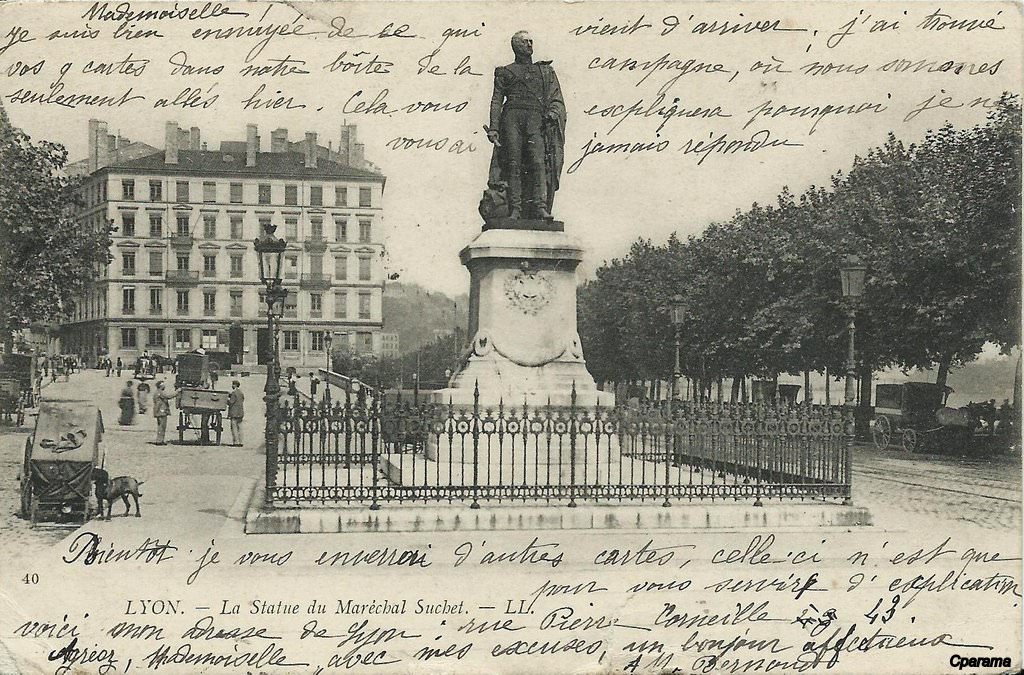 Mademoiselle !
Je suis bien ennuyée de ce qui vient d'arriver, j'ai trouvé
vos 9 cartes dans notre boîte de la campagne, où nous sommes
seulement allés hier. Cela vous expliquera pourquoi je n
vous ai jamais répondu
Bientôt je vous enverrai d'autres cartes, celle-ci n'est que
pour vous servir d'explication
40
LYON. — La Statue du Maréchal Suchet. — LL.
voici mon adresse de Lyon : rue Pierre Corneille 43.
Agréez, Mademoiselle, avec mes excuses, un bonjour affectueux
Bernond
Cparama